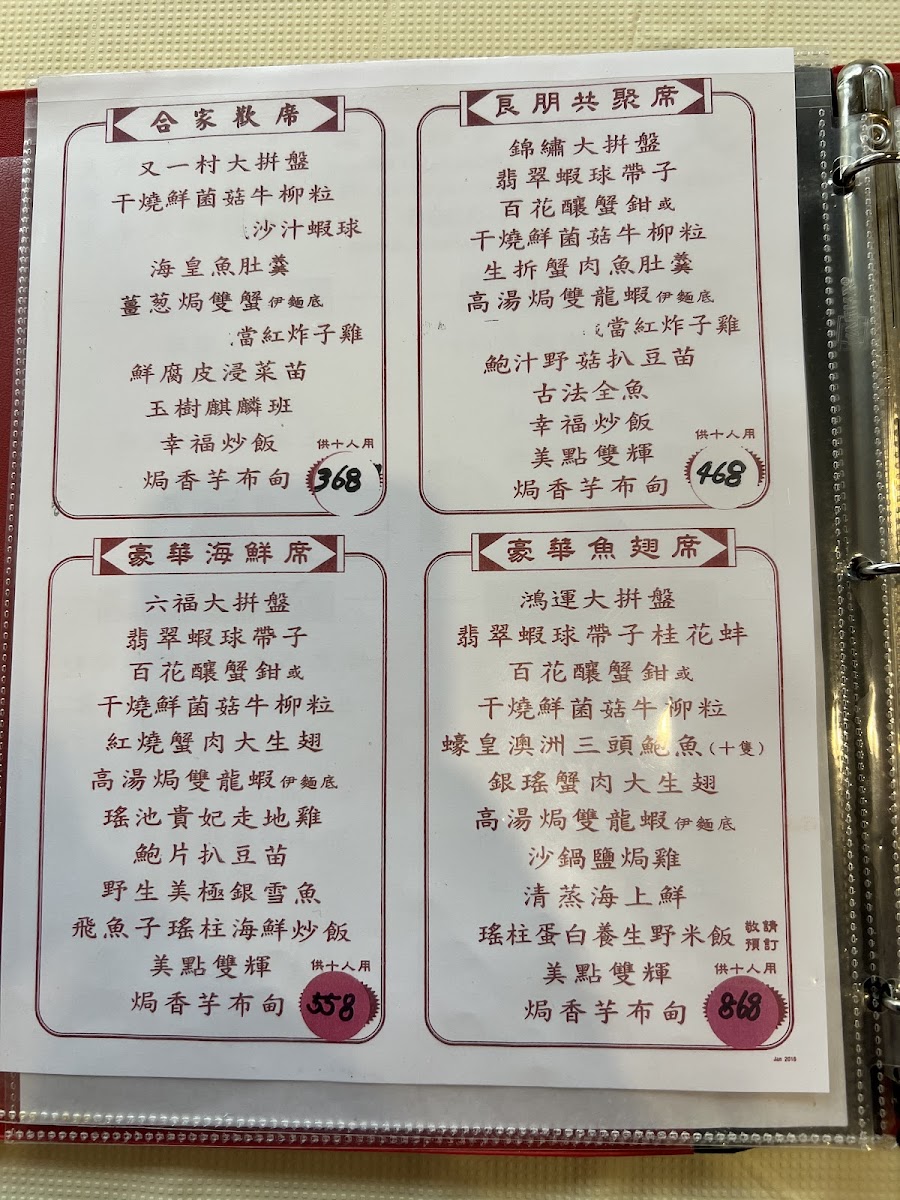 合家歡席
又一村大拼盤
干燒鮮菌菇牛柳粒
沙汁蝦球
海皇魚肚羹
薑葱焗雙蟹伊麵底
當紅炸子雞
鮮腐皮浸菜苗
玉樹麒麟班
幸福炒飯
供十人用
焗香芋布甸
368
良朋共聚席
錦繡大拼盤
翡翠蝦球帶子
百花釀蟹鉗或
干燒鮮菌菇牛柳粒
生折蟹肉魚肚羹
高湯焗雙龍蝦伊麵底
當紅炸子雞
鮑汁野菇扒豆苗
古法全魚
幸福炒飯
供十人用
美點雙輝
焗香芋布甸
468
豪華海鮮席
六福大拼盤
翡翠蝦球帶子
百花釀蟹鉗或
干燒鮮菌菇牛柳粒
紅燒蟹肉大生翅
高湯焗雙龍蝦伊麵底
瑤池貴妃走地雞
鮑片扒豆苗
野生美極銀雪魚
飛魚子瑤柱海鮮炒飯
美點雙輝
供十人用
焗香芋布甸
558
豪華魚翅席
鴻運大拼盤
翡翠蝦球帶子桂花蚌
百花釀蟹鉗或
干燒鮮菌菇牛柳粒
蠔皇澳洲三頭鮑魚(十隻)
銀瑤蟹肉大生翅
高湯焗雙龍蝦伊麵底
沙鍋鹽焗雞
清蒸海上鮮
瑤柱蛋白養生野米飯
敬請
預訂
美點雙輝
供十人用
焗香芋布甸
868
Jan 2018